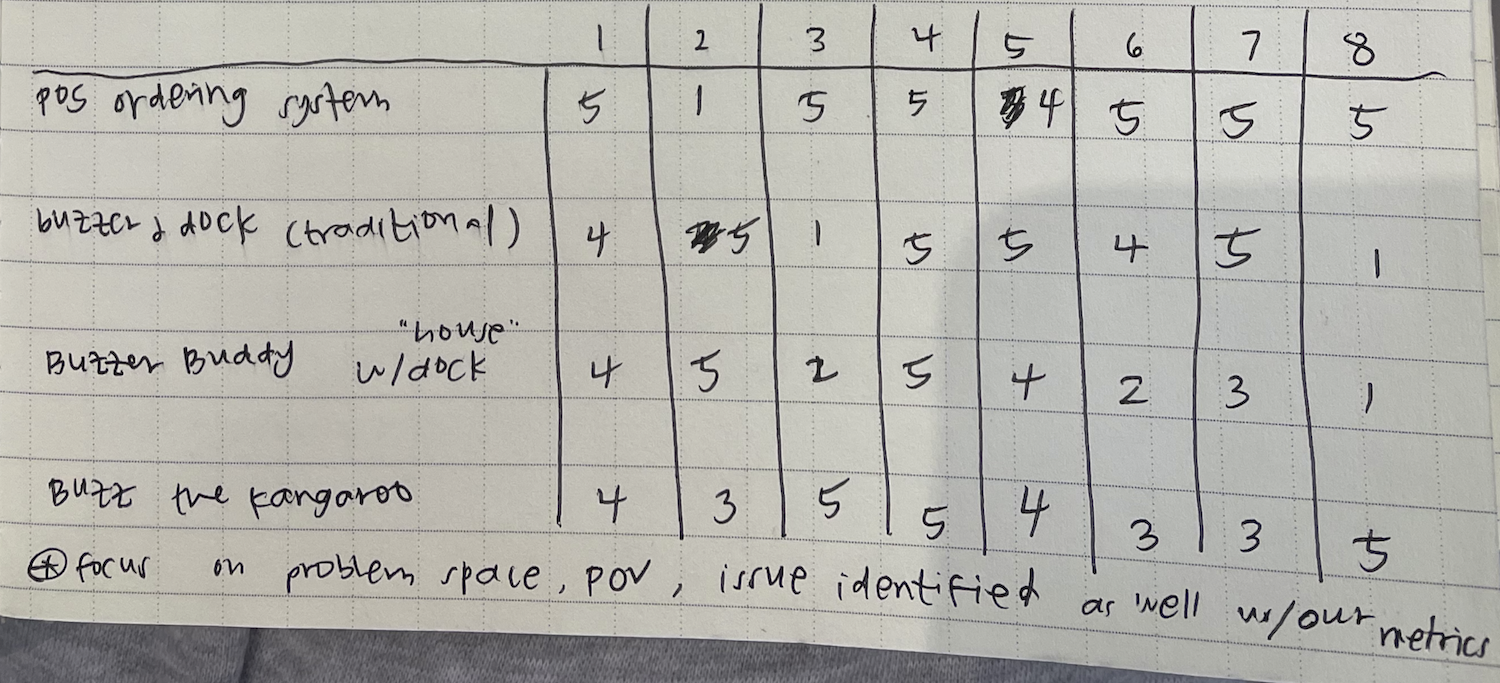 1 2 3 4 5 6 7 8
POS ordering system 5 1 5 5 4 5 5 5
buzzer & dock (traditional) 4 5 1 5 5 4 5 1
"house"
Buzzer Buddy w/dock 4 5 2 5 4 2 3 1
Buzz the kangaroo 4 3 5 5 4 3 3 5
focus on problem space, POV, issue identified as well w/our metrics